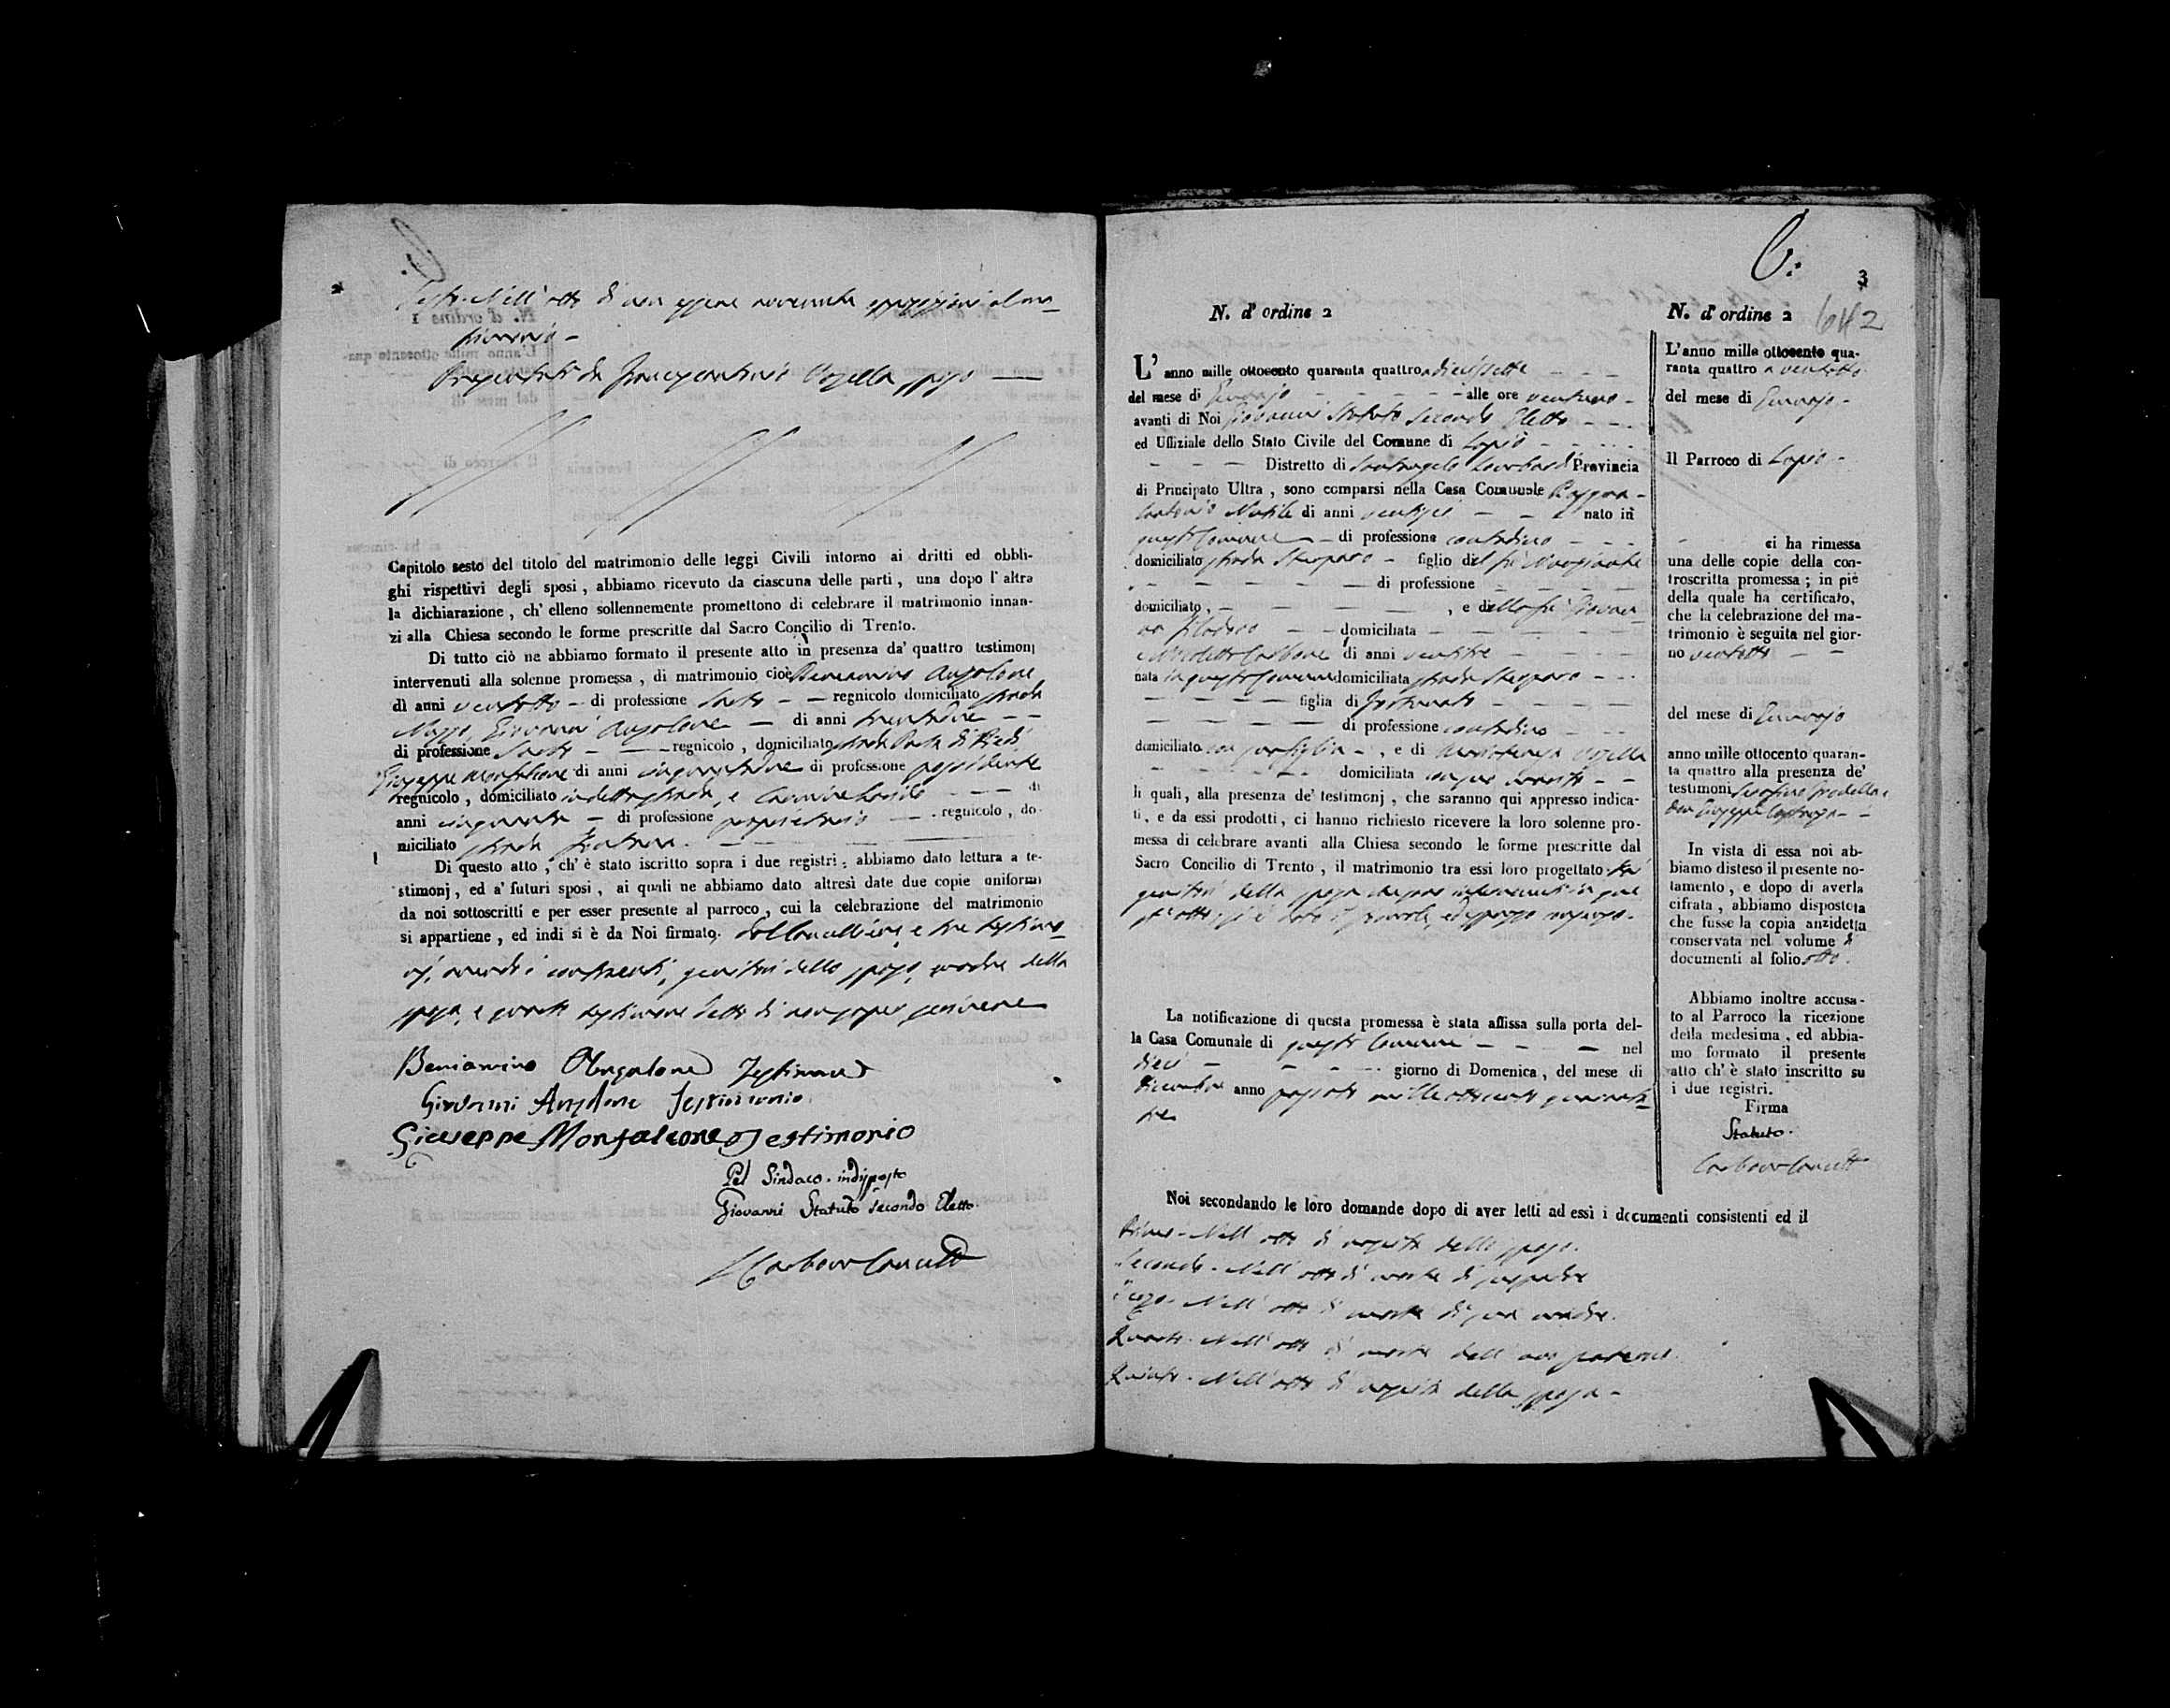 Sesto. Nell' atto di non essere avvenuta opposizione al ma-
trimonio -
Presentati da Francescantonio sposo
Capitolo sesto del titolo del matrimonio delle leggi Civili intorno ai dritti ed obbli-
ghi rispettivi degli sposi, abbiamo ricevuto da ciascuna delle parti, una dopo l'altra
la dichiarazione, ch' elleno sollennemente promettono di celebrare il matrimonio innan-
zi alla Chiesa secondo le forme prescritte dal Sacro Concilio di Trento.
Di tutto ciò ne abbiamo formato il presente atto in presenza da' quattro testimonj
intervenuti alla solenne promessa, di matrimonio cioè Beniamino Angolone
di anni ventotto - di professione Sarto - regnicolo domiciliato strada
Giovanni Angolone - di anni trentadue - -
di professione Sarto - regnicolo, domiciliato strada Porta di Piedi
Giuseppe Monfalcone di anni cinquantadue di professione possidente
regnicolo, domiciliato in detta strada, e Carmine - - - di
anni cinquanta - di professione proprietario - regnicolo, do-
miciliato strada
Di questo atto, ch' è stato iscritto sopra i due registri, abbiamo dato lettura a te-
stimonj, ed a' futuri sposi, ai quali ne abbiamo dato altresì date due copie uniformi
da noi sottoscritti e per esser presente al parroco, cui la celebrazione del matrimonio
si appartiene, ed indi si è da Noi firmato, dal Cancelliere, e tre testimo-
nj, avendo i contraenti, genitori dello sposo, madre della
sposa, e quarto testimone detto di non saper scrivere
Beniamino Angolone Testimone
Giovanni Angolone Testimonio
Giuseppe Monfalcone Testimonio
Pel Sindaco indisposto
Giovanni Statuto secondo Eletto.
Carbone Cancell
6.
3
642
N. d' ordine 2
L' anno mille ottocento quaranta quattro a diciassette - - -
del mese di Gennajo - - - - alle ore ventuno -
avanti di Noi Giovanni Statuto Secondo Eletto - - -
ed Uffiziale dello Stato Civile del Comune di Lapio - - - -
- - - Distretto di Santangelo Lombardi Provincia
di Principato Ultra, sono comparsi nella Casa Comunale
di anni ventisei - - - nato in
questo Comune - di professione contadino - - -
domiciliato strada - figlio del fu
- - - - - di professione - - - -
domiciliato, - - - - , e della fu Giovan-
na - - domiciliata - - - - -
Carbone di anni ventitre - - - -
nata in questo Comune domiciliata strada - - -
- - - - figlia di Fortunato - - - -
- - - - di professione contadino - - -
domiciliato con sua figlia - , e di
- - - - domiciliata con suo marito - -
li quali, alla presenza de' testimonj, che saranno qui appresso indica-
ti, e da essi prodotti, ci hanno richiesto ricevere la loro solenne pro-
messa di celebrare avanti alla Chiesa secondo le forme prescritte dal
Sacro Concilio di Trento, il matrimonio tra essi loro progettato.
genitori della sposa intervenuti in que
st' atto
La notificazione di questa promessa è stata affissa sulla porta del-
la Casa Comunale di questo Comune - - - nel
dieci - - - - giorno di Domenica, del mese di
Dicembre anno passato mille ottocento quaranta-
tre
Noi secondando le loro domande dopo di aver letti ad essi i documenti consistenti ed il
Primo - Nell' atto di nascita dello sposo.
Secondo - Nell' atto di morte di suo padre
Terzo - Nell' atto di morte di sua madre.
Quarto - Nell' atto di morte dell' avo paterno.
Quinto - Nell' atto di nascita della sposa -
N. d' ordine 2
L'anno mille ottocento qua-
ranta quattro a ventotto
del mese di Gennajo -
Il Parroco di Lapio -
ci ha rimessa
una delle copie della con-
troscritta promessa; in piè
della quale ha certificato,
che la celebrazione del ma-
trimonio è seguita nel gior-
no ventotto - -
del mese di Gennajo
anno mille ottocento quaran-
ta quattro alla presenza de'
testimoni Serafino
Don Giuseppe
In vista di essa noi ab-
biamo disteso il presente no-
tamento, e dopo di averla
cifrata, abbiamo disposto
che fusse la copia anzidetta
conservata nel volume di
documenti al folio otto.
Abbiamo inoltre accusa-
to al Parroco la ricezione
della medesima, ed abbia-
mo formato il presente
atto ch' è stato inscritto su
i due registri.
Firma
Statuto.
Carbone Cancell